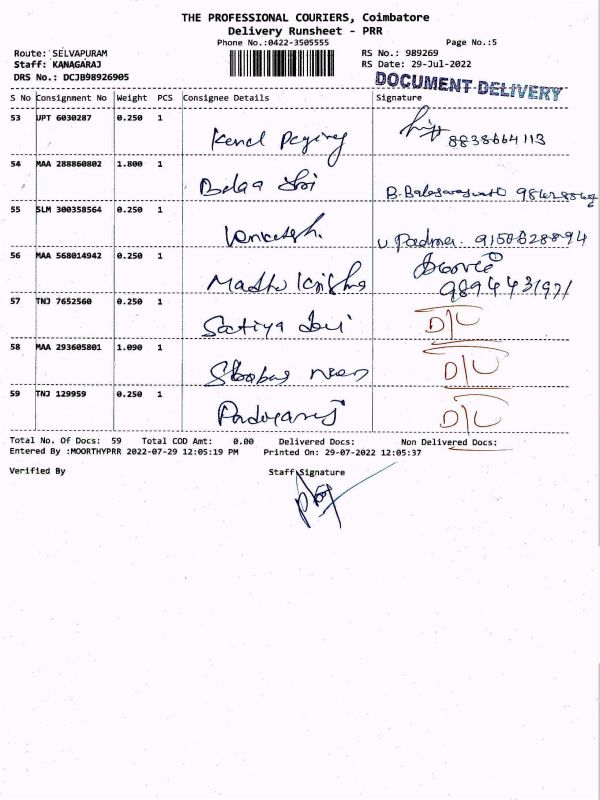 THE PROFESSIONAL COURIERS, Coimbatore
Delivery Runsheet - PRR
Phone No.:0422-3505555 Page No.:5
Route: SELVAPURAM RS No.: 989269
Staff: KANAGARAJ RS Date: 29-Jul-2022
DRS No.: DCJB98926905 DOCUMENT DELIVERY
S No Consignment No Weight PCS Consignee Details Signature
53 UPT 6030287 0.250 1
8838664113
54 MAA 288860802 1.800 1
55 SLM 300358564 0.250 1
Venkatesh. V. Padma. 9150828894
56 MAA 568014942 0.250 1
Madhu Krishna 9894431971
57 TNJ 7652560 0.250 1
Sathya Devi D/C
58 MAA 293605801 1.090 1
D/C
59 TNJ 129959 0.250 1
D/C
Total No. Of Docs: 59 Total COD Amt: 0.00 Delivered Docs: Non Delivered Docs:
Entered By :MOORTHYPRR 2022-07-29 12:05:19 PM Printed On: 29-07-2022 12:05:37
Verified By Staff Signature